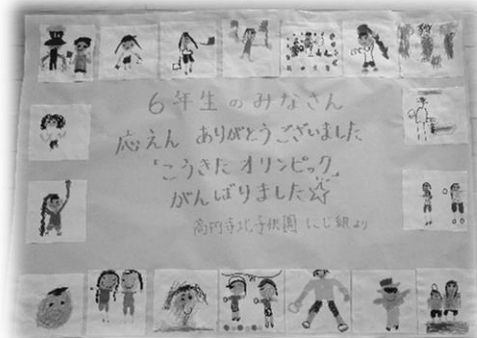 6年生のみなさん
応えん ありがとうございました
「こうきたオリンピック」
がんばりました☆
高円寺北子供園 にじ組より